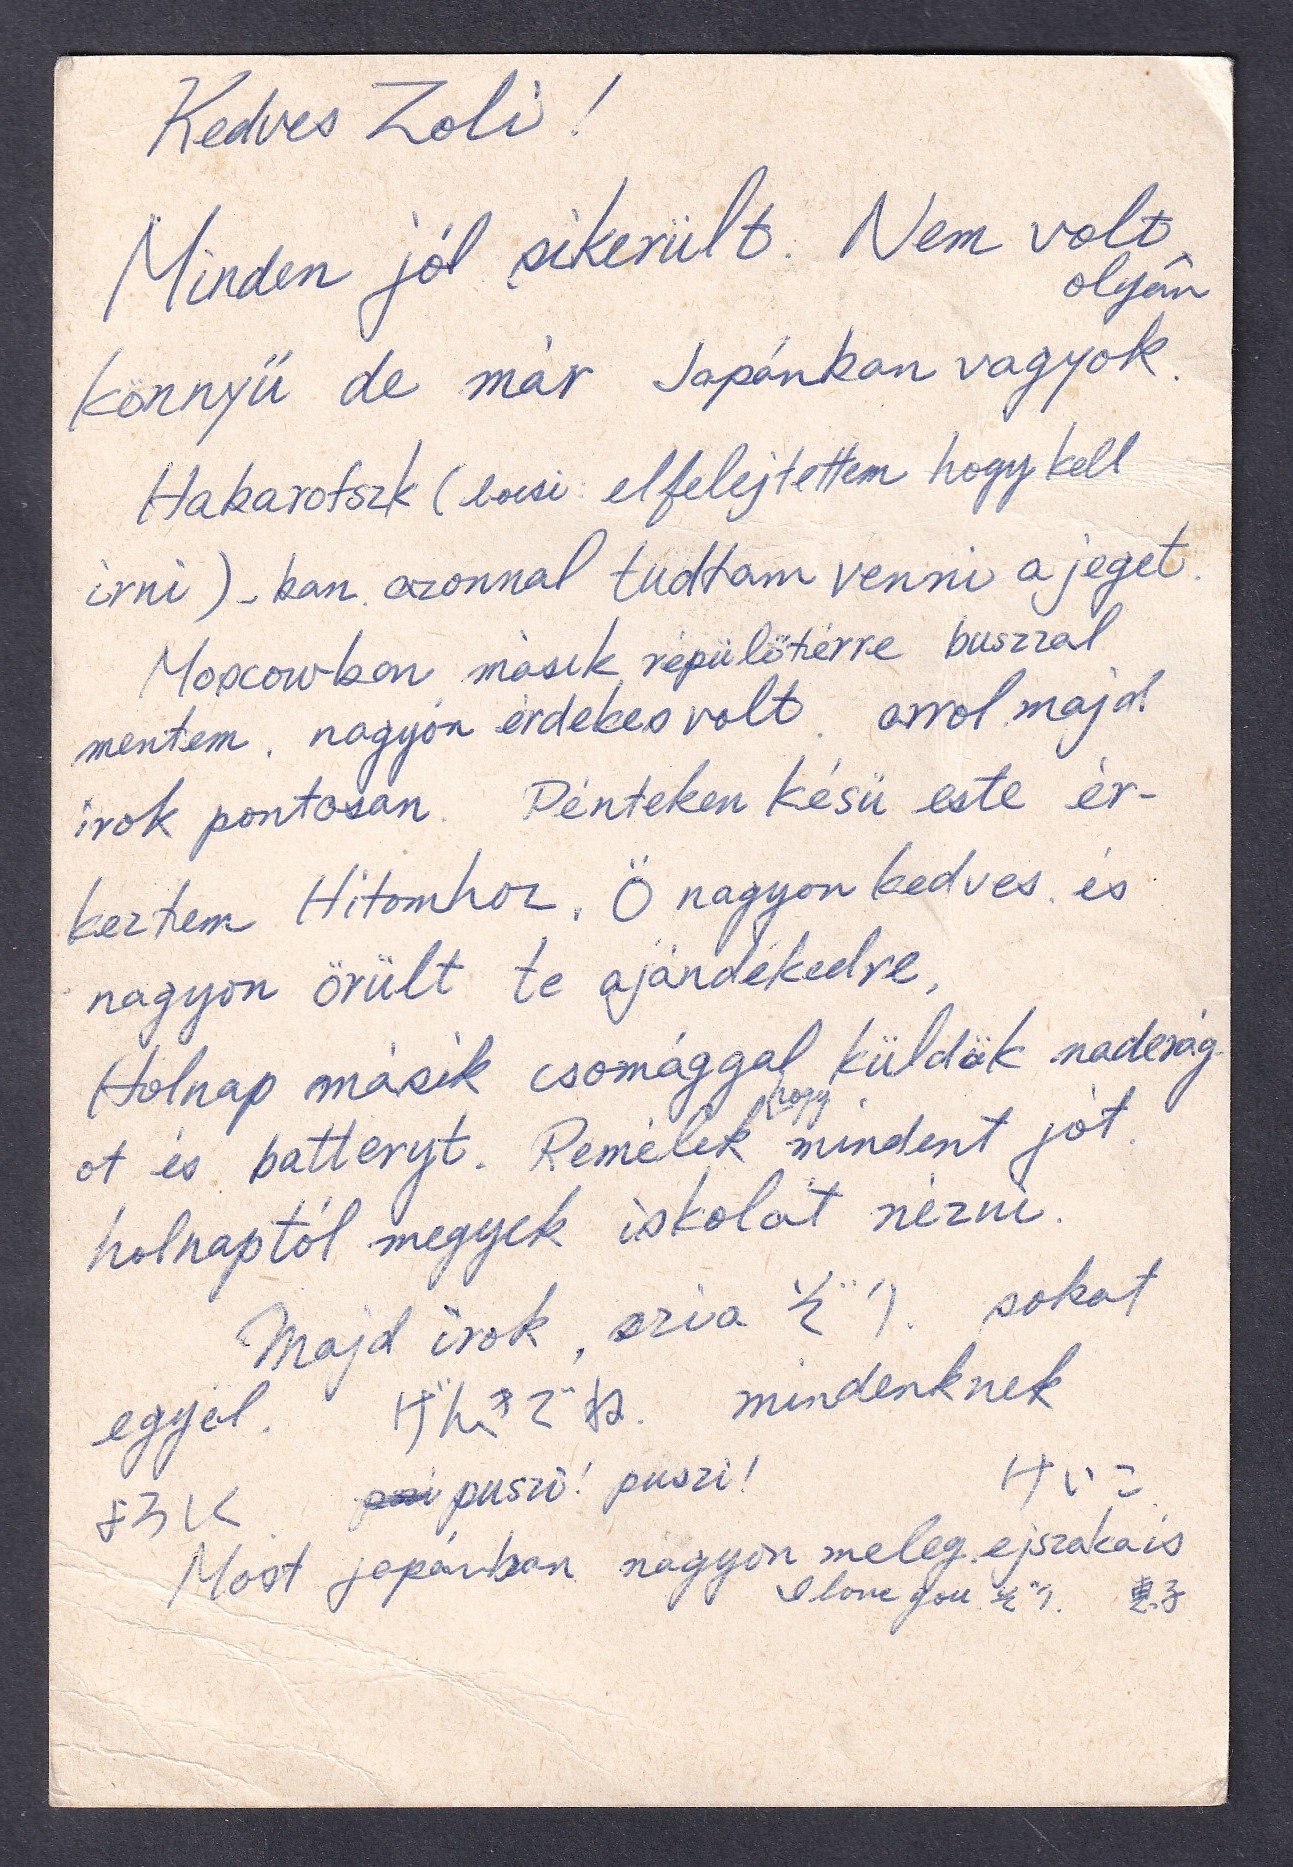 Kedves Zoli!
Minden jól sikerült. Nem volt
olyán
könnyű de már Japánban vagyok.
Habarofszk (bocsi. elfelejtettem hogy kell
irni)-ban. azonnal tudtam venni a jeget.
Moscowban másik répülőtérre busszal
mentem. nagyón érdekes volt. arrol majd
irok pontosan. Pénteken késü este ér-
keztem Hitomhoz. Ö nagyon kedves. és
nagyon örült te ajándékedre,
Holnap másik csomággal küldök naderág-
ot és batteryt. Remélek hogy mindent jót.
holnaptól megyek iskolát nézni.
Majd irok, szia ぞり. sokat
egyél. げんきでね. mindenknek
よろしく. puszi! puszi! けいこ
Most japánban nagyon meleg. ejszaka is
I love you ぞり. 恵子